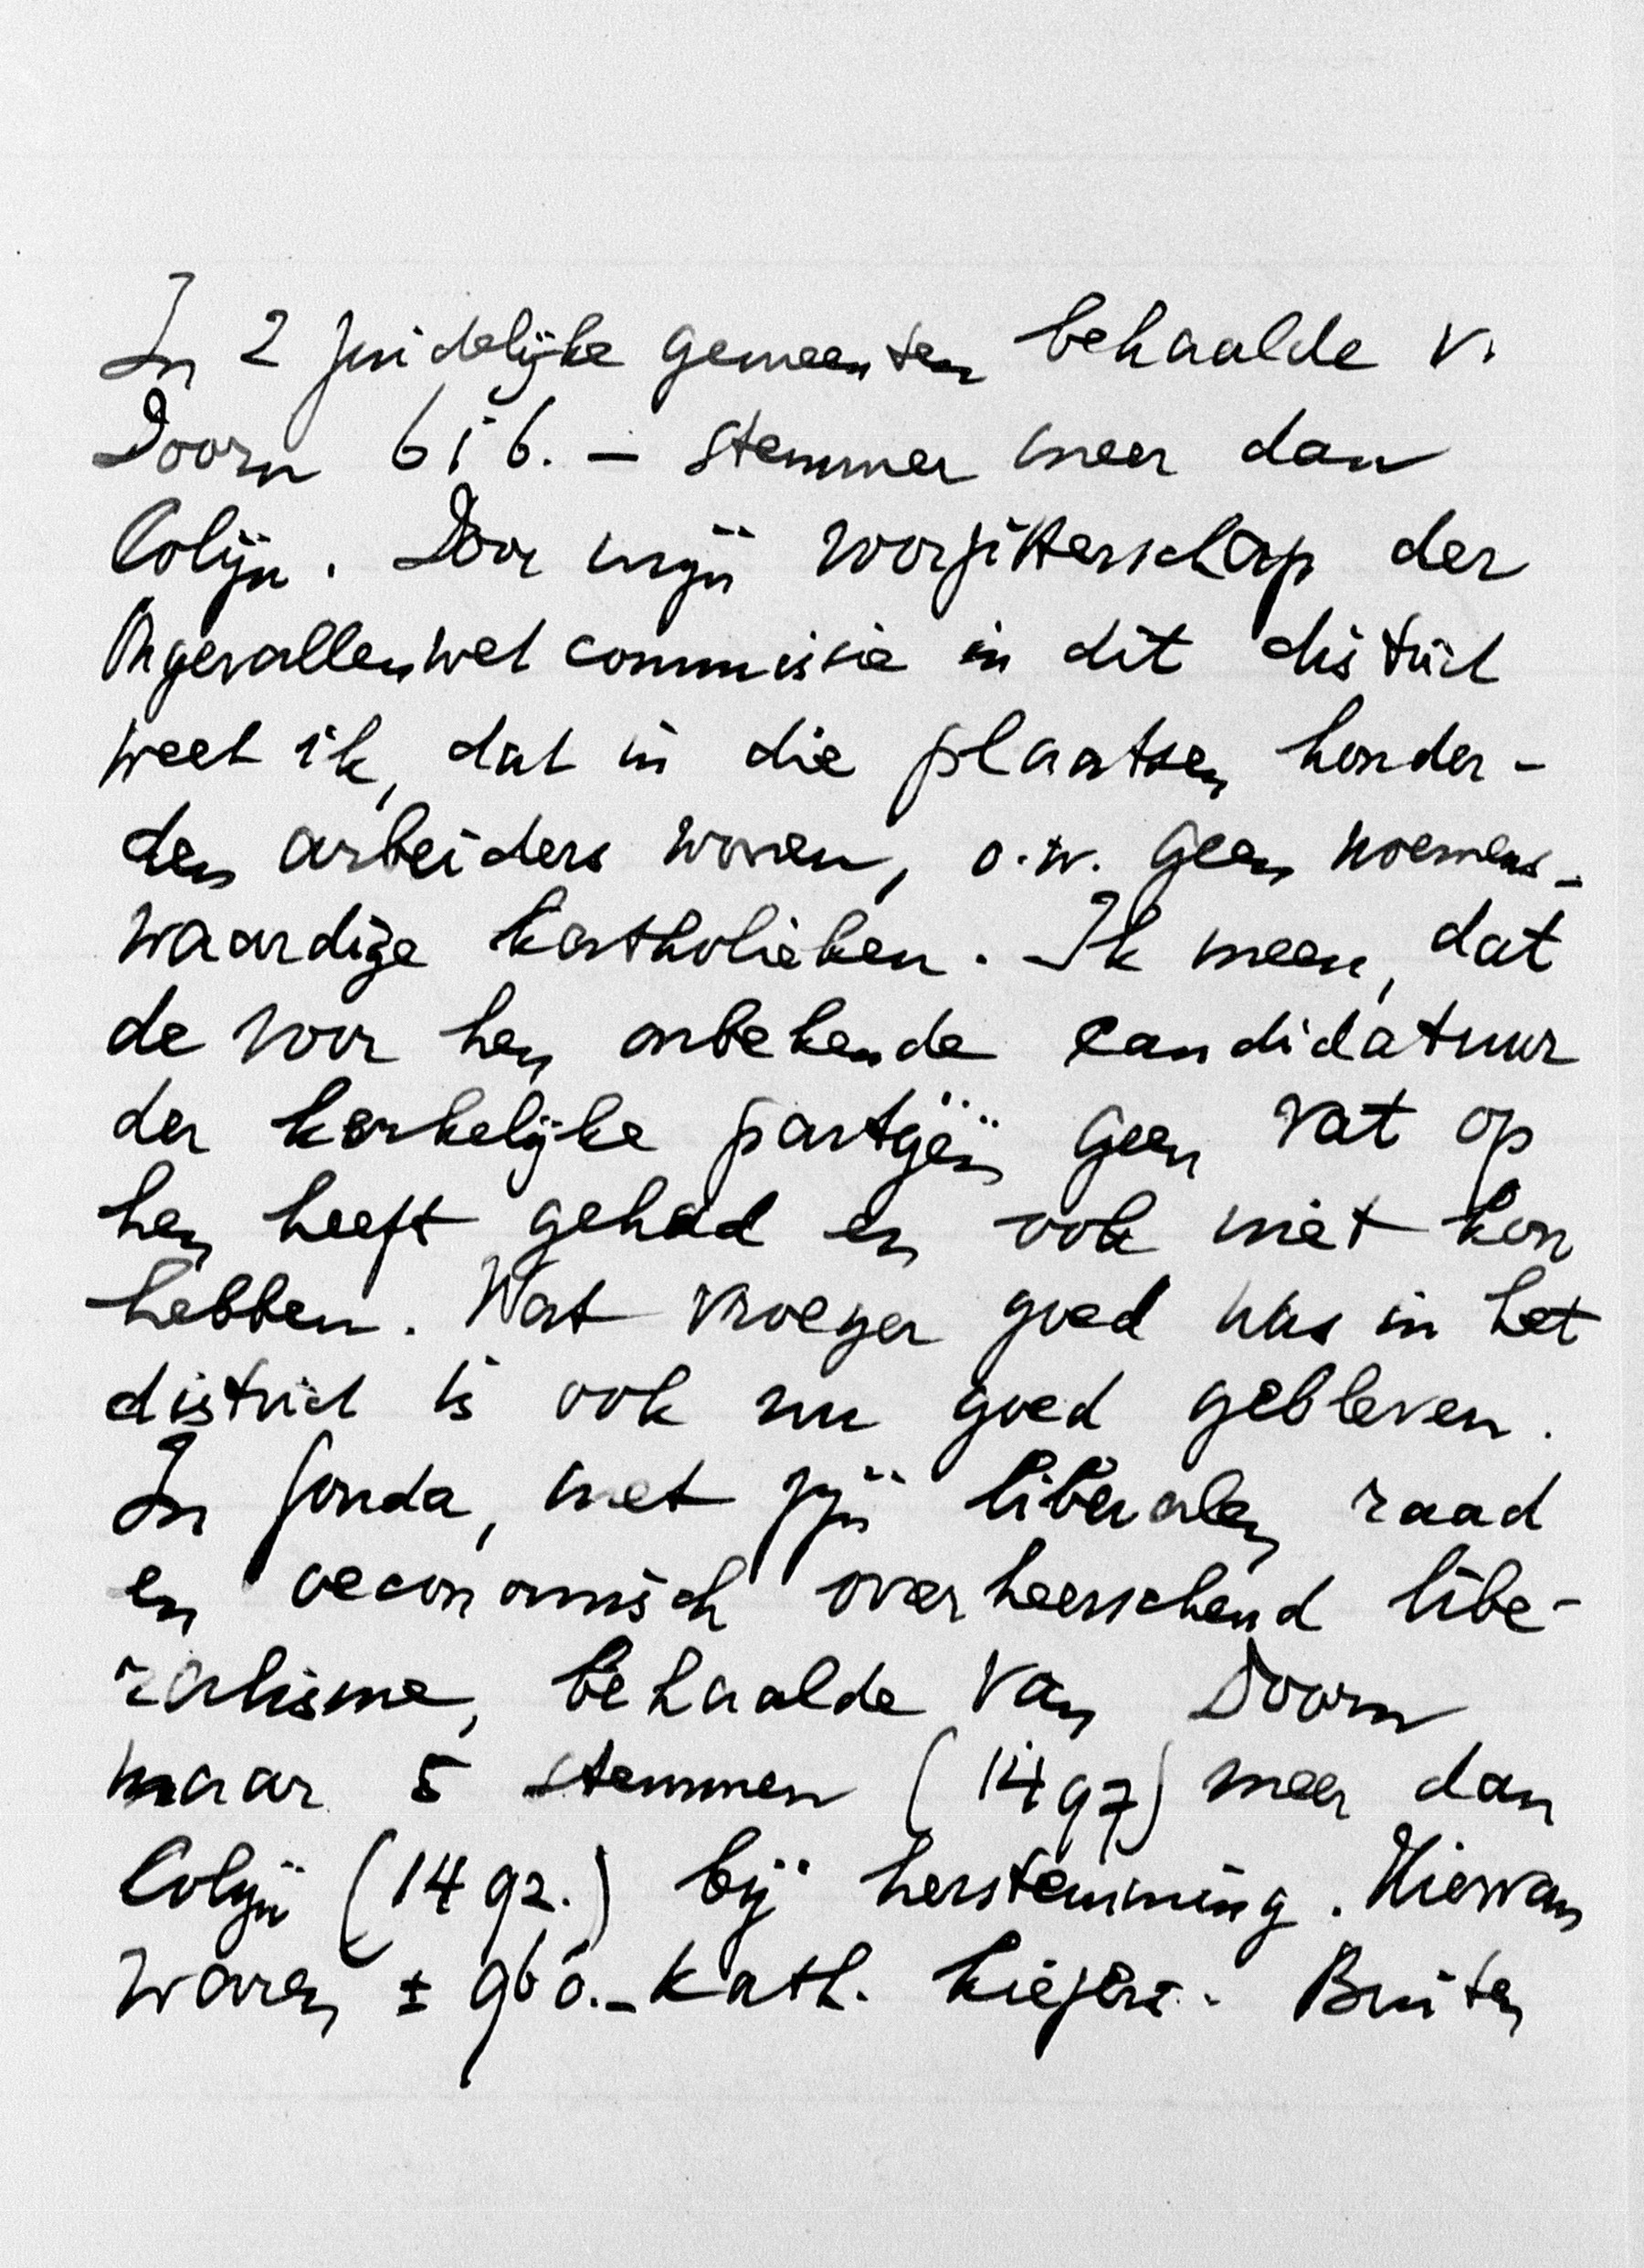 In 2 zuidelijke gemeenten behaalde v.
Doorn 616.– stemmen meer dan
Colijn. Door mijn voorzitterschap der
Ongevallenwet commissie in dit district
weet ik, dat in die plaatsen honder-
den arbeiders wonen, o.w. geen noemens-
waardige katholieken. Ik meen, dat
de voor hen onbekende candidatuur
der kerkelijke partijen geen vat op
hen heeft gehad en ook niet kon
hebben. Wat vroeger goed was in het
district is ook nu goed gebleven.
In Gouda, met zijn liberalen raad
en oeconomisch overheerschend libe-
ralisme, behaalde van Doorn
maar 5 stemmen (1497) meer dan
Colijn (1492.) bij herstemming. Hiervan
waren ± 960.– Kath. kiezers. Buiten